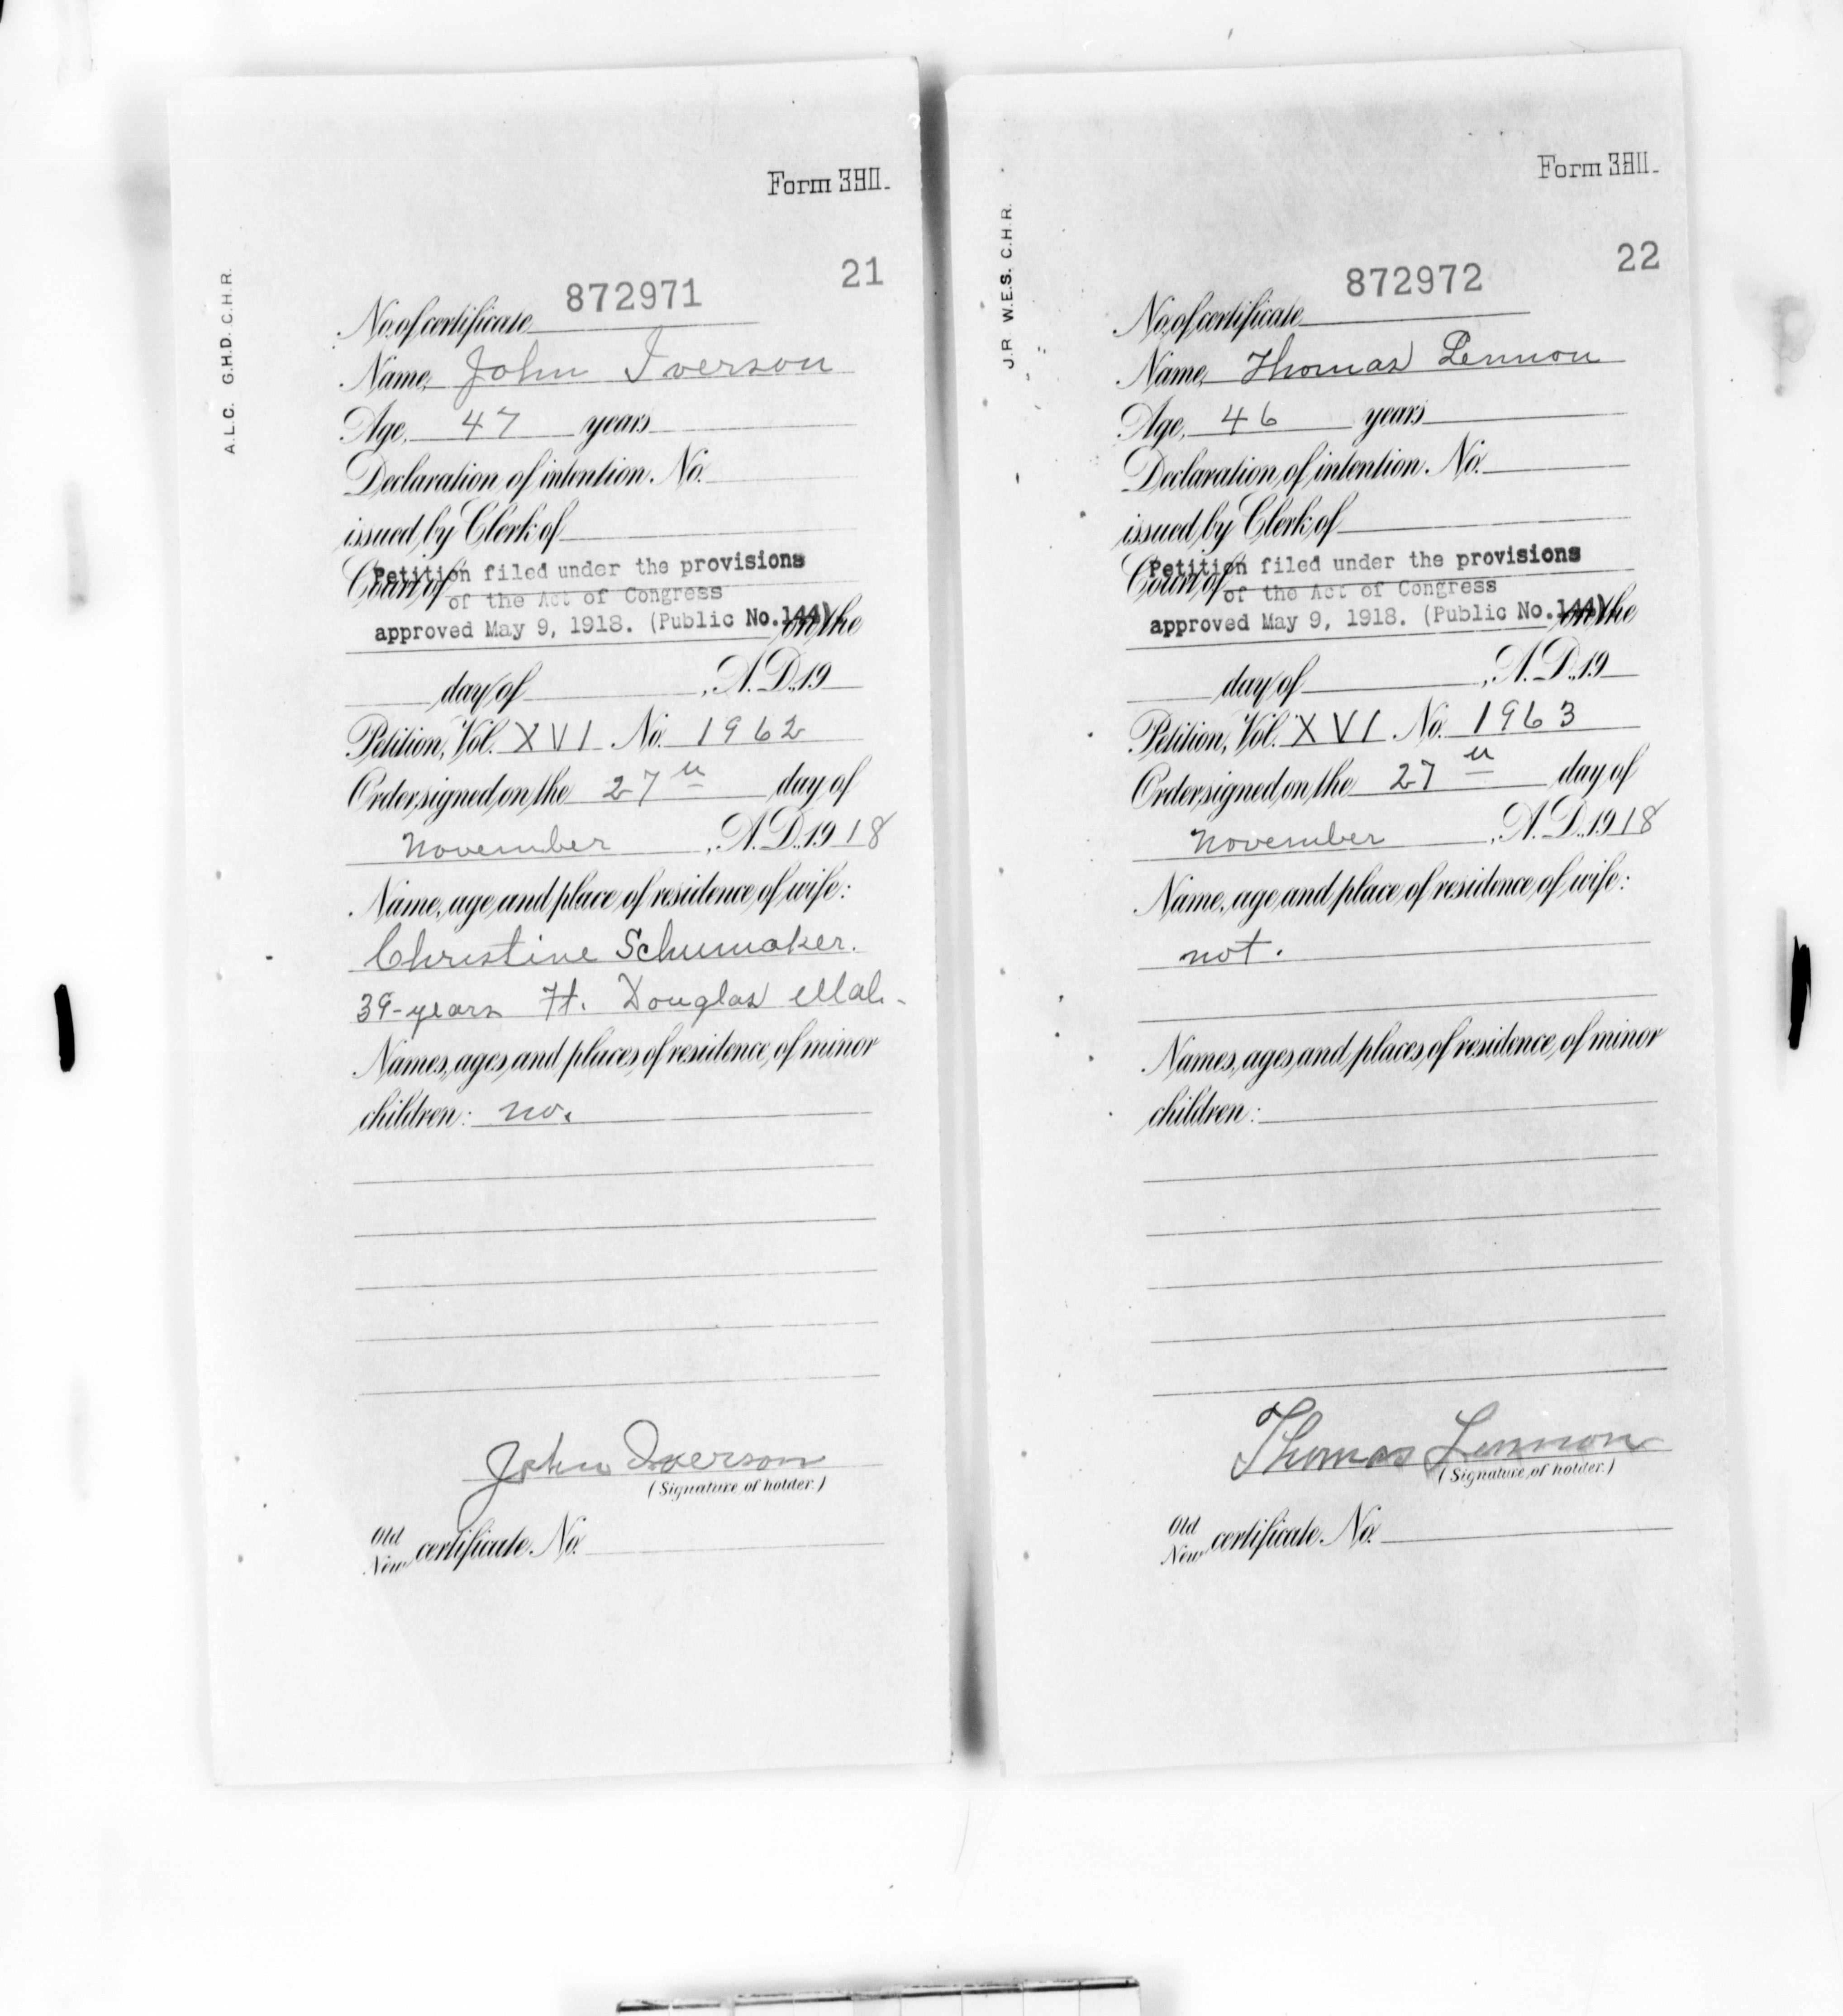 A.L.C. G.H.D. C.H.R.
21
No. of certificate 872971
Name, John Iverson
Age, 47 years
Declaration of intention. No.
issued by Clerk of
Court of
Petition filed under the provisions
of the Act of Congress
approved May 9, 1918. (Public No. 144)
on the
day of , A.D. 19
Petition, Vol. XVI No. 1962
Order signed on the 27" day of
November , A.D. 1918
Name, age and place of residence of wife:
Christine Schumaker.
39-years Ft. Douglas Utah.
Names, ages and places of residence of minor
children: no.
John Iverson
(Signature of holder.)
Old
New certificate No.
J.R. W.E.S. C.H.R.
22
No. of certificate 872972
Name, Thomas Lennon
Age, 46 years
Declaration of intention. No.
issued by Clerk of
Court of
Petition filed under the provisions
of the Act of Congress
approved May 9, 1918. (Public No. 144)
on the
day of , A.D. 19
Petition, Vol. XVI No. 1963
Order signed on the 27" day of
November , A.D. 1918
Name, age and place of residence of wife:
not.
Names, ages and places of residence of minor
children:
Thomas Lennon
(Signature of holder.)
Old
New certificate No.